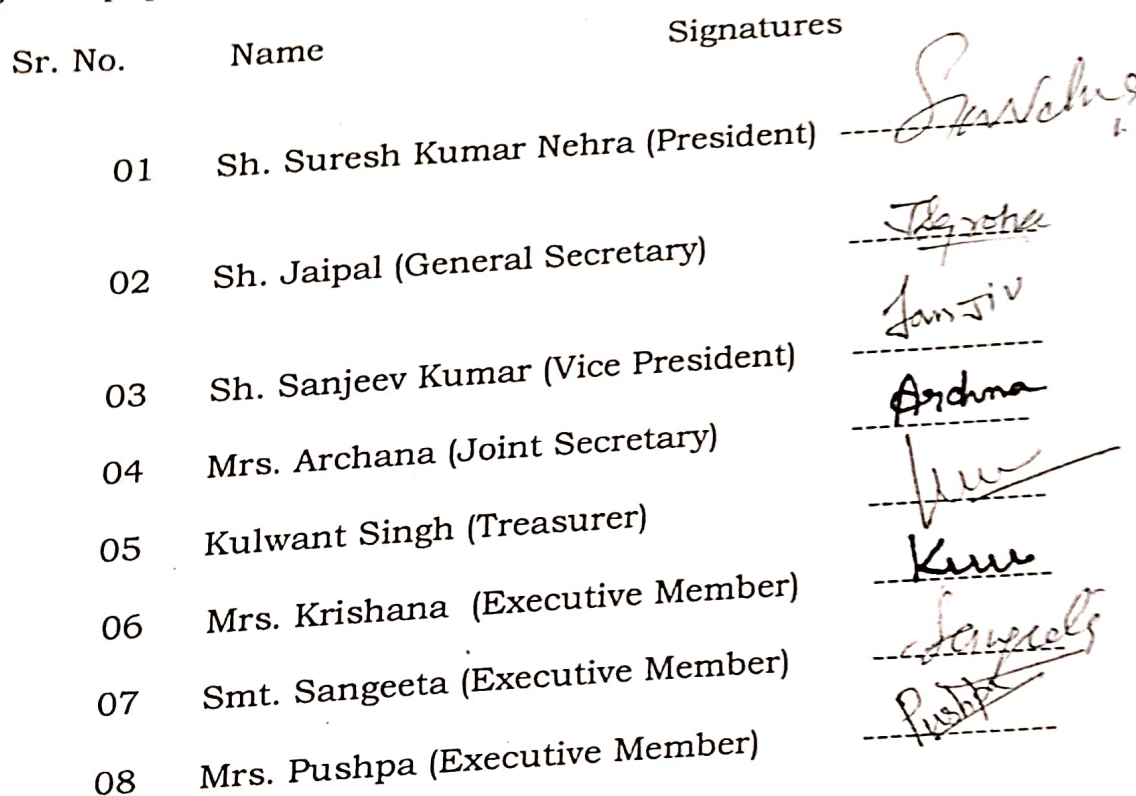 Sr. No. Name Signatures
01 Sh. Suresh Kumar Nehra (President)
02 Sh. Jaipal (General Secretary)
03 Sh. Sanjeev Kumar (Vice President) Sanjiv
04 Mrs. Archana (Joint Secretary) Archna
05 Kulwant Singh (Treasurer)
06 Mrs. Krishana (Executive Member)
07 Smt. Sangeeta (Executive Member)
08 Mrs. Pushpa (Executive Member) Pushpa